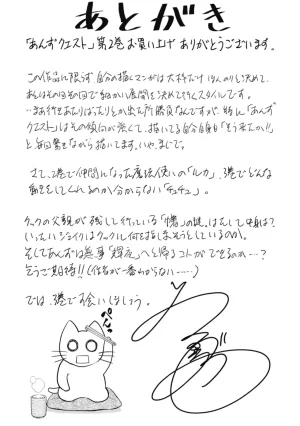 あとがき
「あんずクエスト」第2巻お買い上げありがとうございます。
この作品に限らず、自分の描くマンガは大枠だけほんのりと決めて、
あとはその回その回で細かい展開を決めて行くスタイルです。
…まあ行きあたりばったりとか出た所勝負なんですが、特に「あんず
クエスト」はその傾向が強くて、描いてる自分自身も「そう来たか!!」
と毎回驚きながら描いてます。いや、まじで。
さて、2巻で仲間になった魔法使いの「ルカ」、3巻でどんな
動きをしてくれるのか分からない「チュチュ」。
クックの父親が残して行った「 」の謎。はたして中身は?
いったいジョイクはクックルに何を指しまそうとしているのか。
そしてあんずは無事「 」へと帰るコトができるのか…?
乞うご期待!!(作者が一番わからない……)
では、3巻で会いましょう。
ペんっ